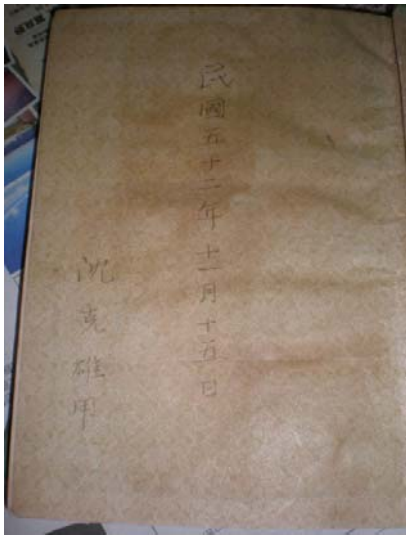 民國五十二年十一月十五日
沈克雄用